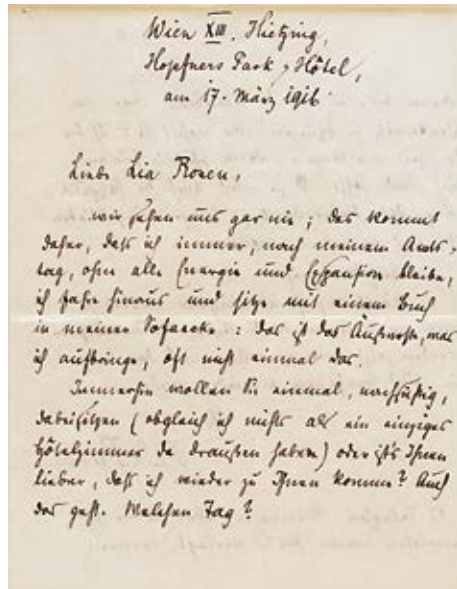 Wien XIII. Hietzing,
Hopfners Park-Hôtel,
am 17. März 1916
Liebe Lia Rosen,
wir sehen uns gar nie; das kommt
daher, daß ich immer, nach meinem Amts-
tag, ohne alle Energie und Expansion bleibe,
ich fahre hinaus und sitze mit einem Buch
in meiner Sofaecke: das ist das Äußerste, was
ich aufbringe, oft nicht einmal das.
Immerhin wollen Sie einmal,
dabeisitzen (obgleich ich nichts als ein einziges
Hôtelzimmer da draußen habe) oder ist's Ihnen
lieber, daß ich wieder zu Ihnen komme? Auch
das geht. Welchen Tag?